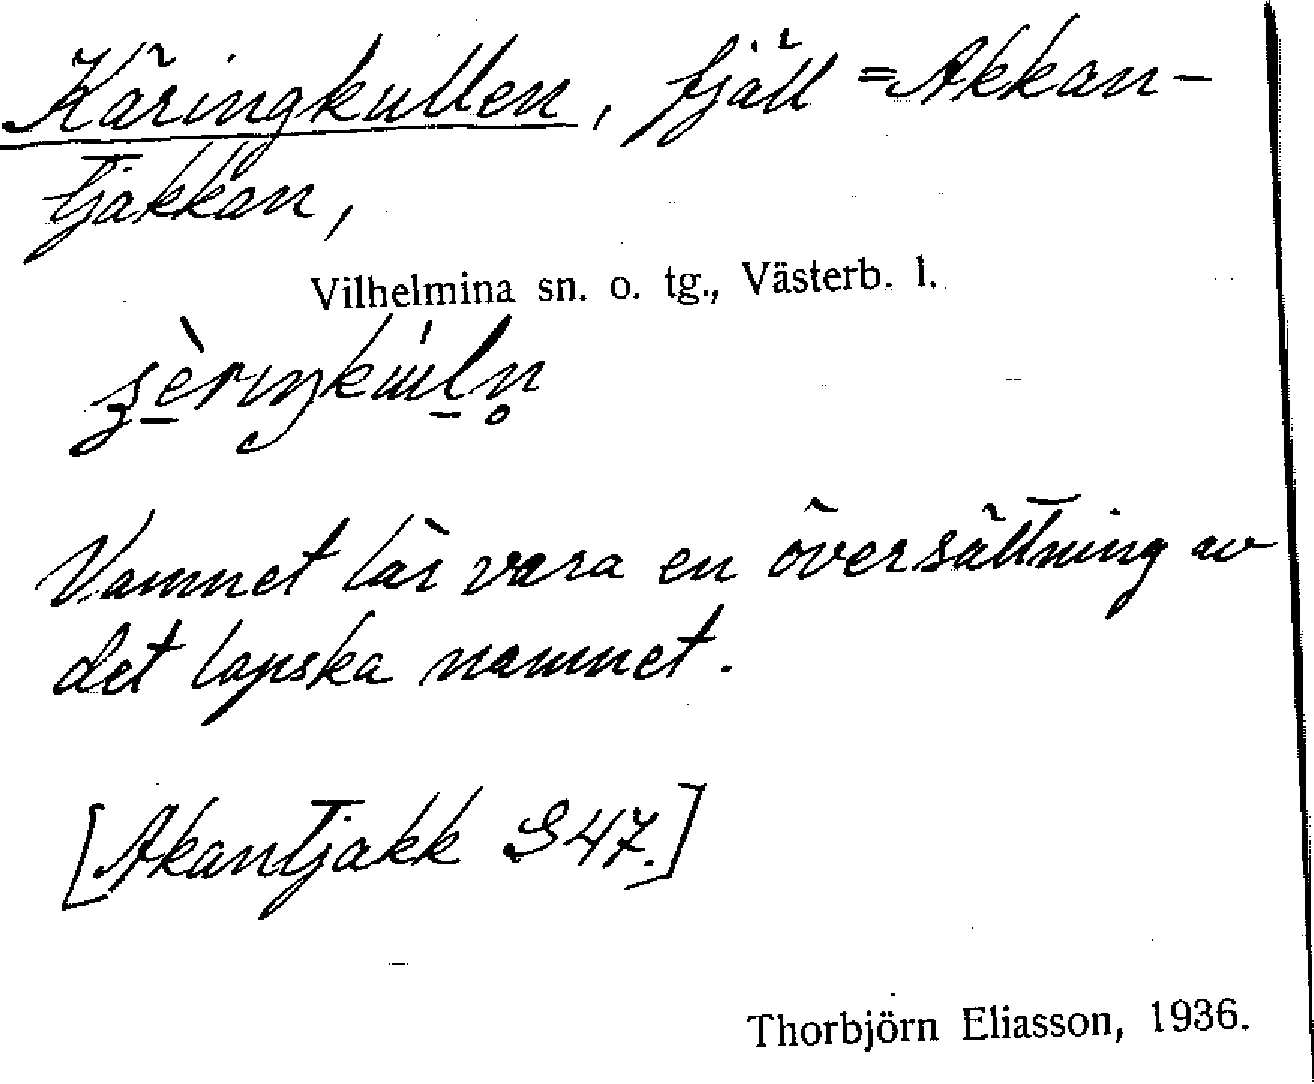 Käringkullen, fjäll = Akkan-
tjakkan,
Vilhelmina sn. o. tg., Västerb. l.
Namnet lär vara en översättning av
det lapska namnet.
[Akantjakk S47.]
Thorbjörn Eliasson, 1936.